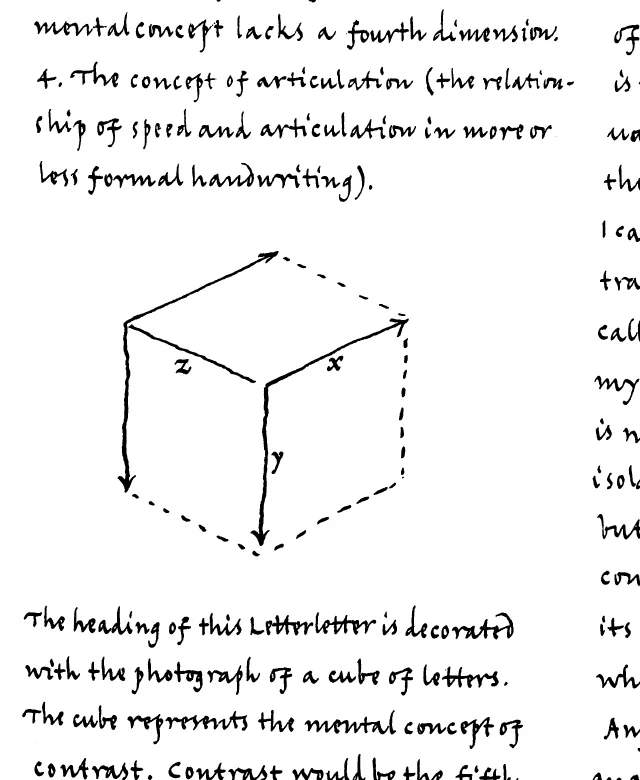 mental concept lacks a fourth dimension.
4. The concept of articulation (the relation-
ship of speed and articulation in more or
less formal handwriting).
z
x
y
The heading of this Letterletter is decorated
with the photograph of a cube of letters.
The cube represents the mental concept of
contrast. Contrast would be the fifth
of
is
the
I ca
tra
call
my
is n
isol
but
con
its
wh
An